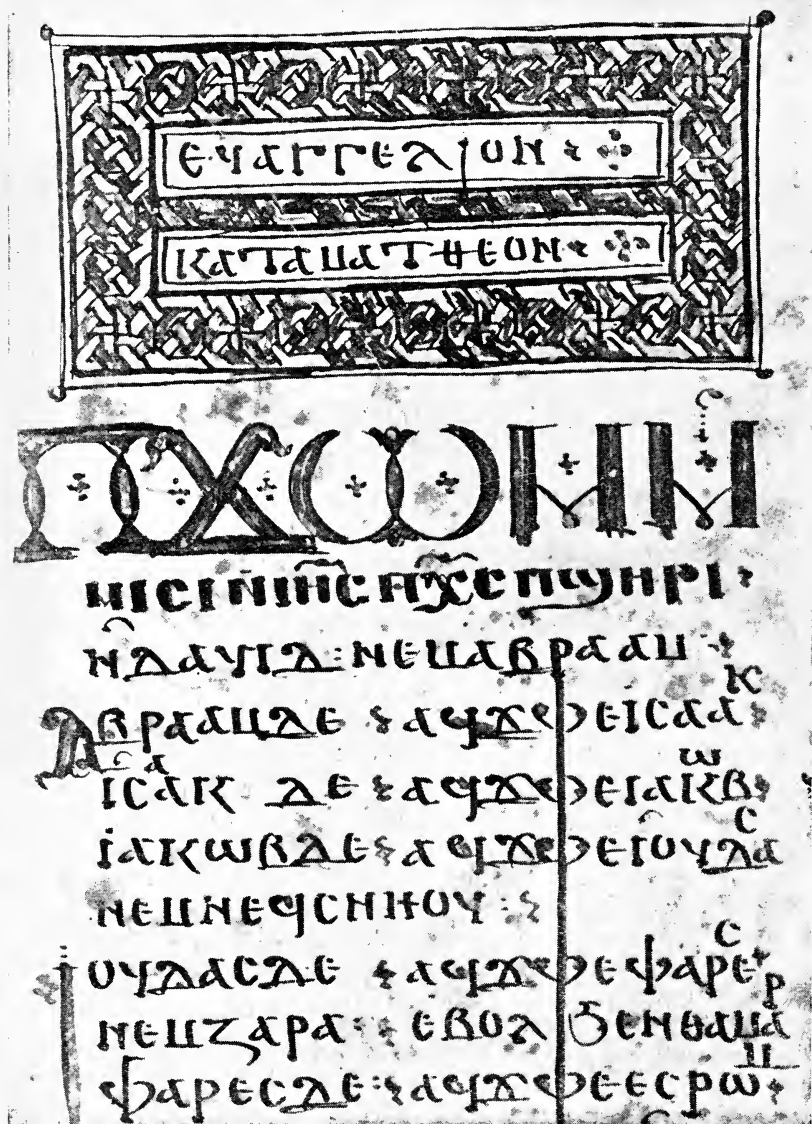 ⲉⲩⲁⲅⲅⲉⲗⲓⲟⲛ
ⲕⲁⲧⲁⲙⲁⲧⲑⲉⲟⲛ
ⲡϫⲱⲙⲙ
ⲙⲓⲥⲓⲛ̀ⲓⲏ̅ⲥⲡⲭ̅ⲥⲡϣⲏⲣⲓ:
ⲛ̀ⲇⲁⲩⲓⲇ:ⲛⲉⲙⲁⲃⲣⲁⲁⲙ
ⲁⲃⲣⲁⲁⲙⲇⲉ ⲁϥϫⲫⲉⲓⲥⲁⲁⲕ
ⲓⲥⲁⲁⲕ ⲇⲉ ⲁϥϫⲫⲉⲓⲁⲕⲱⲃ
ⲓⲁⲕⲱⲃⲇⲉ ⲁϥϫⲫⲉⲓⲟⲩⲇⲁⲥ
ⲛⲉⲙⲛⲉϥⲥⲛⲏⲟⲩ:
ⲓⲟⲩⲇⲁⲥⲇⲉ ⲁϥϫⲫⲉⲫⲁⲣⲉⲥ
ⲛⲉⲙⲍⲁⲣⲁ: ⲉⲃⲟⲗ ϧⲉⲛⲑⲁⲙⲁⲣ
ⲫⲁⲣⲉⲥⲇⲉ:ⲁϥϫⲫⲉⲉⲥⲣⲱⲙ